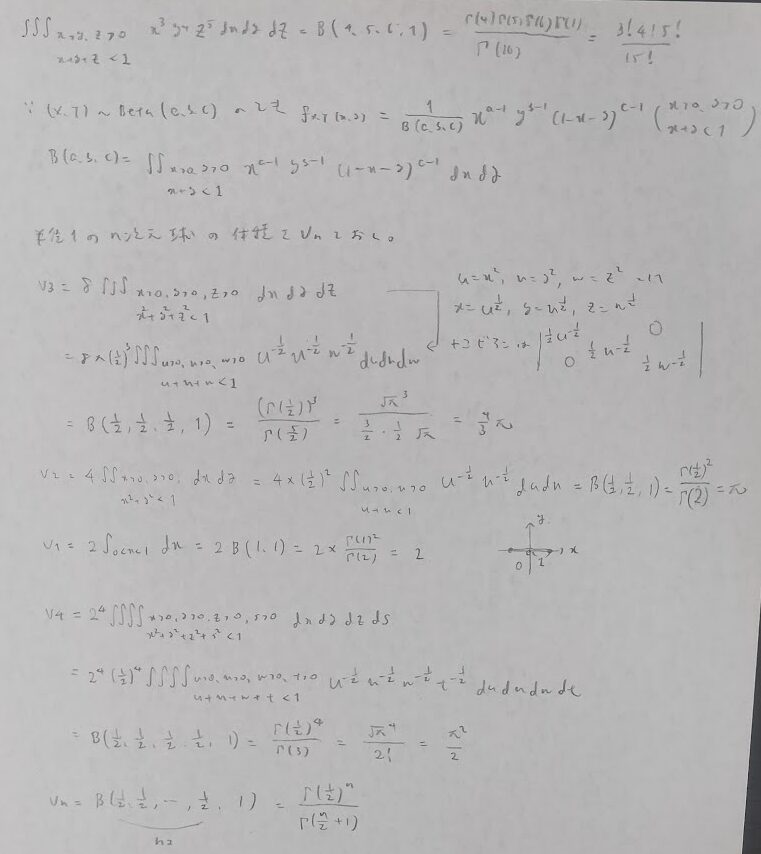 ∭ x,y,z>0 x+y+z<1 x³y⁴z⁵ dx dy dz = B(4,5,6,1) = Γ(4)Γ(5)Γ(6)Γ(1)/Γ(16) = 3!4!5!/15!
∵ (X,Y) ~ Beta(a,b,c) f_{X,Y}(x,y) = 1/B(a,b,c) x^{a-1} y^{b-1} (1-x-y)^{c-1} (x>0, y>0 x+y<1)
B(a,b,c) = ∬ x>0,y>0 x+y<1 x^{a-1} y^{b-1} (1-x-y)^{c-1} dx dy
半径1のn次元球の体積をVnとおく。
V3 = 8∭ x>0,y>0,z>0 x²+y²+z²<1 dx dy dz
u=x², v=y², w=z²
x=u^{1/2}, y=v^{1/2}, z=w^{1/2}
ヤコビアンは |½u^{-1/2} 0 ½v^{-1/2} 0 ½w^{-1/2}|
= 8×(1/2)³∭ u>0,v>0,w>0 u+v+w<1 u^{-1/2} v^{-1/2} w^{-1/2} du dv dw
= B(1/2,1/2,1/2,1) = (Γ(1/2))³/Γ(5/2) = √π³/(3/2・1/2 √π) = 4/3 π
V2 = 4∬ x>0,y>0, x²+y²<1 dx dy = 4×(1/2)²∬ u>0,v>0 u+v<1 u^{-1/2} v^{-1/2} du dv = B(1/2,1/2,1) = Γ(1/2)²/Γ(2) = π
V1 = 2∫0<x<1 dx = 2B(1,1) = 2×Γ(1)²/Γ(2) = 2
y
x
0 1
V4 = 2⁴⨌ x>0,y>0,z>0,s>0 x²+y²+z²+s²<1 dx dy dz ds
= 2⁴(1/2)⁴⨌ u>0,v>0,w>0,t>0 u+v+w+t<1 u^{-1/2} v^{-1/2} w^{-1/2} t^{-1/2} du dv dw dt
= B(1/2,1/2,1/2,1/2,1) = Γ(1/2)⁴/Γ(3) = √π⁴/2! = π²/2
Vn = B(1/2,1/2,…,1/2,1) = Γ(1/2)ⁿ/Γ(n/2+1)
nコ